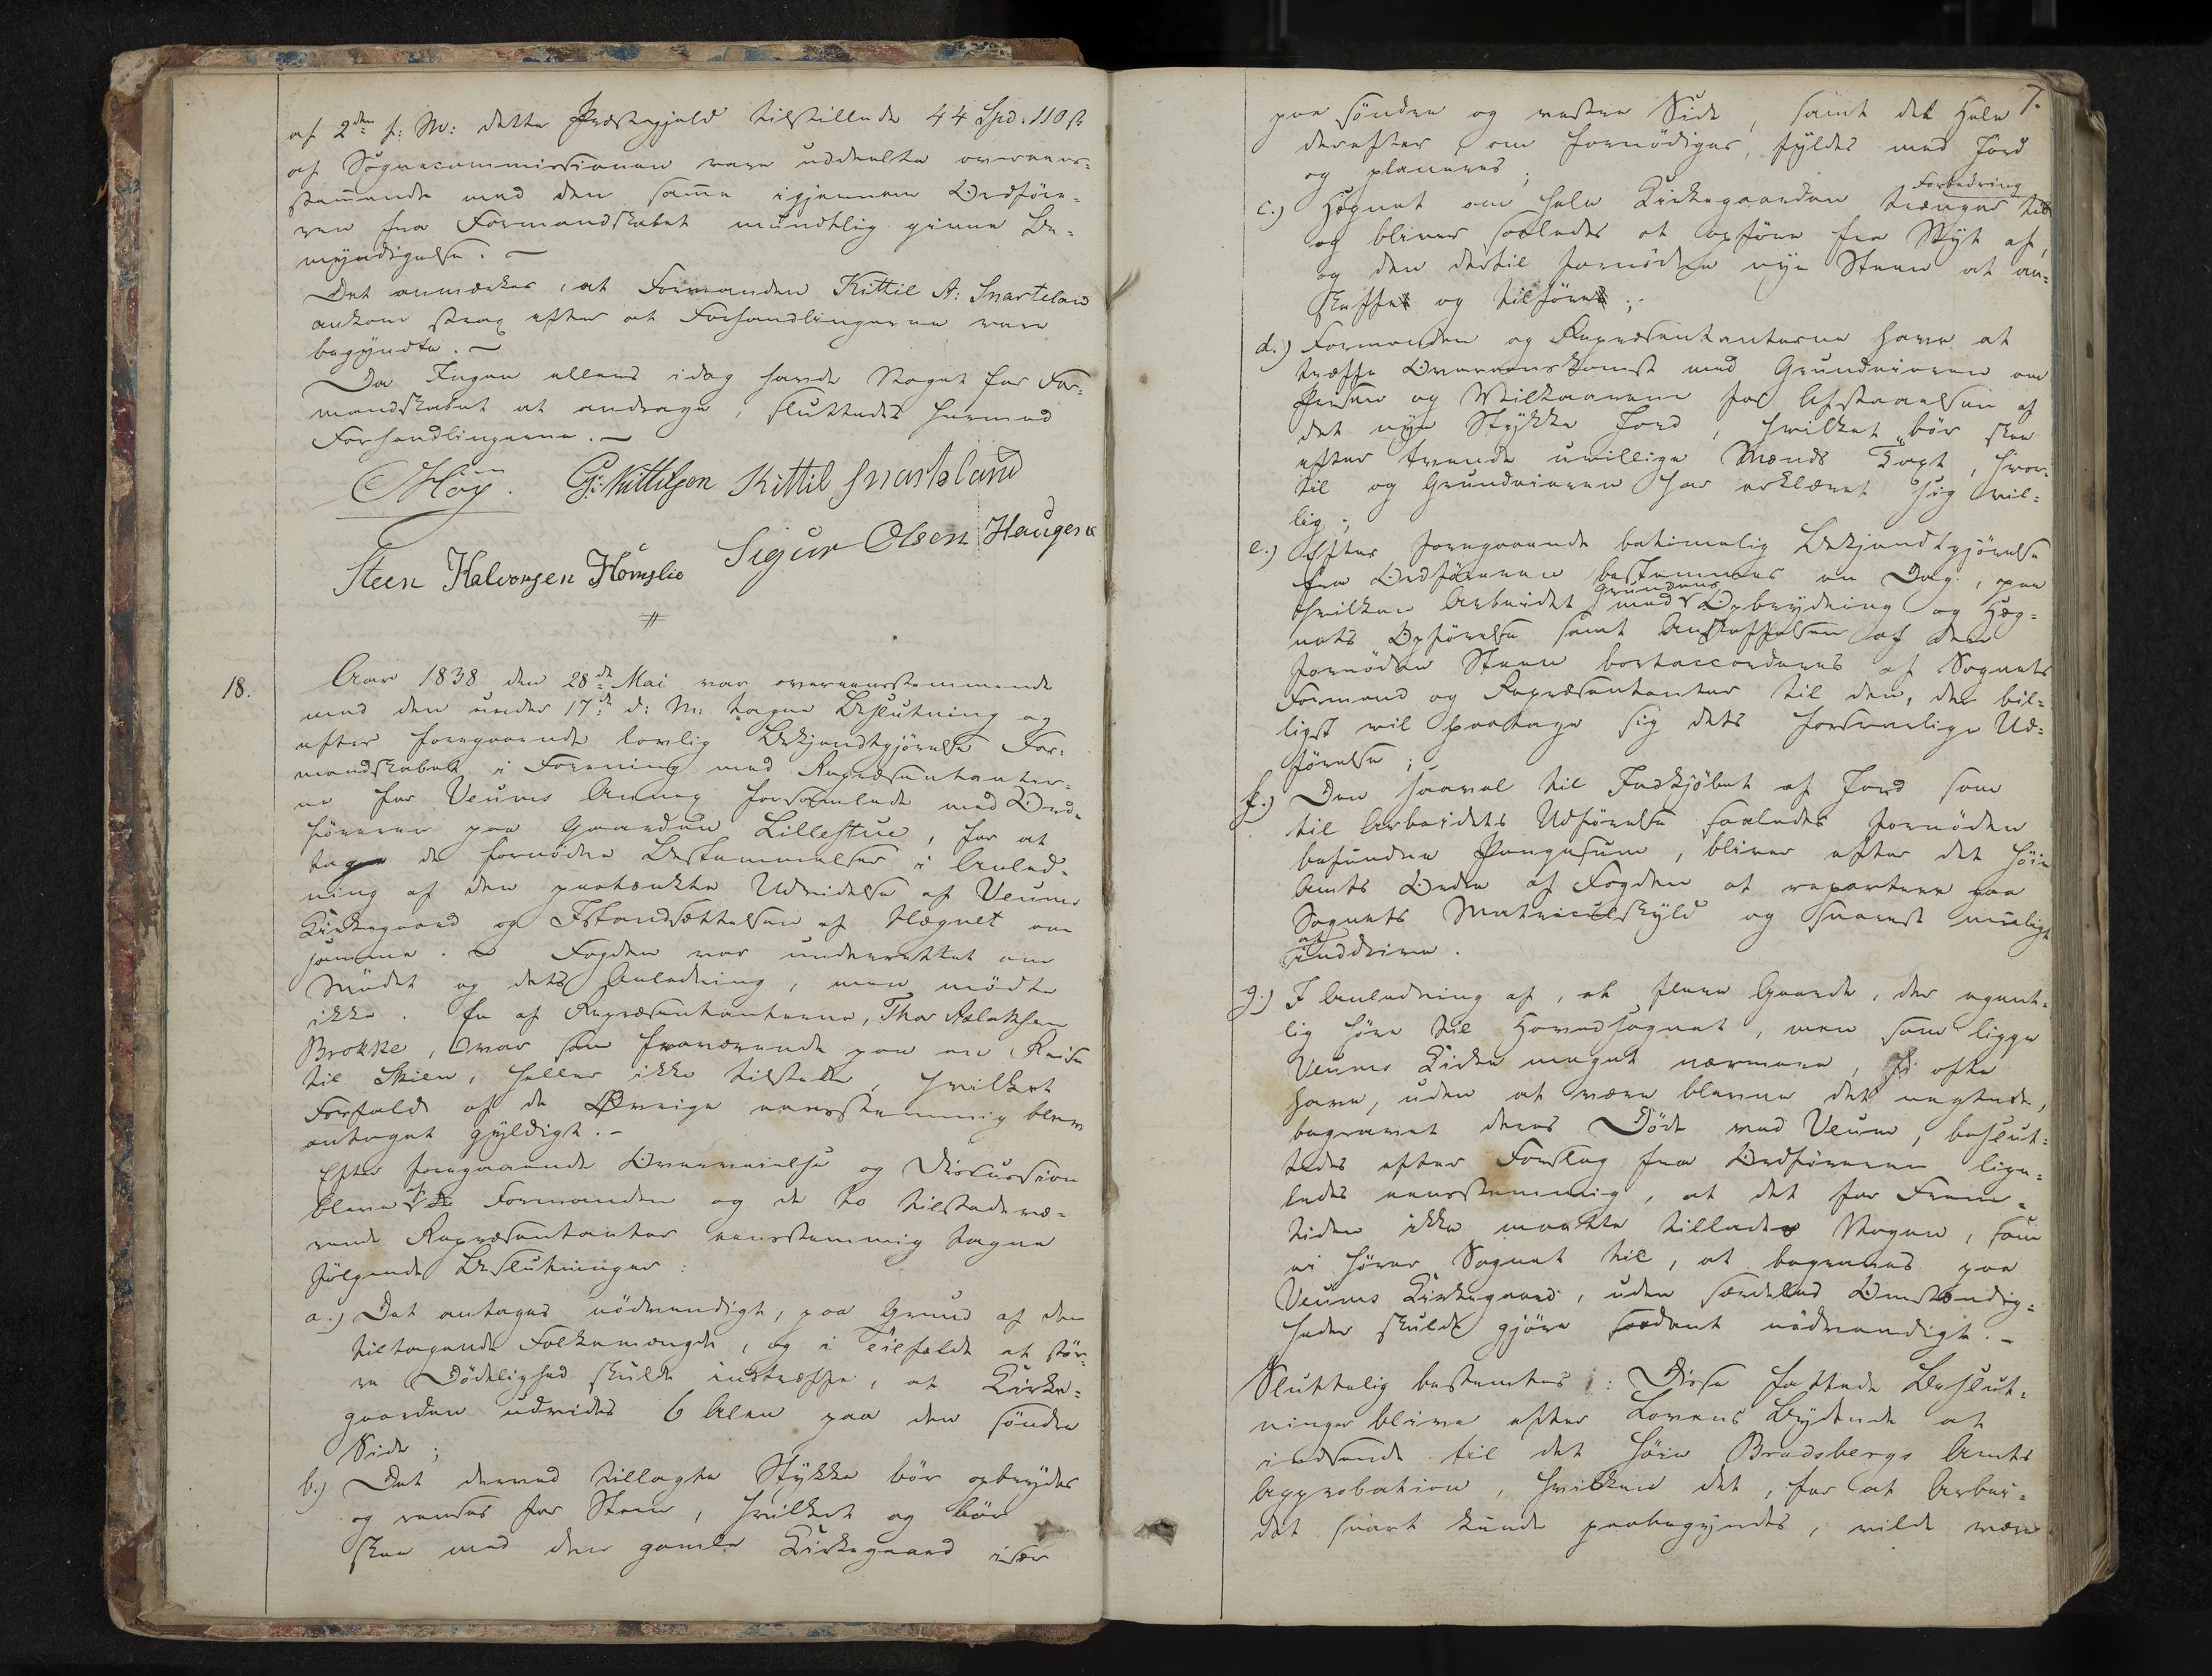 af 2den f: M: dette Præstegjeld tilstillede 44 Spd: 110 s
af Sognecommissionen være uddeelte overeens-
stemmende med den samme igjennem Ordføre-
ren fra Formandskabet mundtlig givne Be-
myndigelse. —
Det anmærkes, at Formanden Kittil A: Snarteland
ankom strax efter at Forhandlingerne vare
begyndte. —
Da Ingen ellers idag havde Noget for For-
mandskabet at andrage, sluttedes hermed
Forhandlingerne. —
G: Kittilsen Kittil Snarteland
Steen Halvorsen Homslie Sigur Olsen Haugen
#
18.
Aar 1838 den 28de Mai var overeensstemmende
med den under 17de d: M: tagne Beslutning og
efter foregaaende lovlig Bekjendtgjørelse For-
mandskabet i Forening med Repræsentanter-
ne for Veums Annex forsamlede med Ord-
føreren paa Gaarden Lillestue, for at
tage de fornødne Bestemmelser i Anled-
ning af den paatænkte Udvidelse af Veums
Kirkegaard og Istandsættelsen af Hægnet om
samme. — Fogden var underrettet om
Mødet og dets Anledning, men mødte
ikke. En af Repræsentanterne, Thor Aslaksen
Brokke, var som fraværende paa en Reise
til Skien, heller ikke tilstede, hvilket
Forfald af de Øvrige eensstemmig blev
antaget gyldigt. —
Efter foregaaende Overveielse og Discussion
bleve af Formanden og de to tilstedevæ-
rende Repræsentanter eensstemmig tagne
følgende Beslutninger:
a.) Det antages nødvendigt, paa Grund af den
tiltagende Folkemængde, og i Tilfælde at stør-
re Dødelighed skulde indtræffe, at Kirke-
gaarden udvides 6 Alen paa den søndre
Side;
b.) Det derved tillagte Stykke bør opbrydes
og renses for Steen, hvilket og bør
skee med den gamle Kirkegaard især
7.
paa søndre og vestre Side, samt det Hele
derefter, om fornødiges, fyldes med Jord
og planeres;
Forbedring
c.) Hægnet om hele Kirkegaarden trænger til
og bliver saaledes at opføre fra Nyt af,
og den dertil fornødne nye Steen at an-
skaffe og tilføre;
d.) Formanden og Repræsentanterne have at
træffe Overeenskomst med Grundeieren om
Prisen og Vilkaarene for Afstaaelsen af
det nye Stykke Jord, hvilket bør skee
efter tvende uvillige Mænds Taxt, hvor-
til og Grundeieren har erklæret sig vil-
lig;
e.) Efter foregaaende betimelig Bekjendtgjørelse
fra Ordføreren bestemmes en Dag, paa
Grundens
hvilken Arbeidet med Opbrydning og Hæg-
nets Opførelse samt Anskaffelsen af den
fornødne Steen bortaccorderes af Sognets
Formand og Repræsentanter til den, der bil-
ligst vil paatage sig dets forsvarlige Ud-
førelse;
f.) Den saavel til Indkjøbet af Jord som
til Arbeidets Udførelse saaledes fornøden
befundne Pengesum, bliver efter det høie
Amts Ordre af Fogden at repartere paa
Sognets Matriculskyld og snarest mueligt
at
inddrive.
g.) I Anledning af, at flere Gaarde, der egent-
lig høre til Hovedsognet, men som ligge
Veums Kirke meget nærmere, ofte
have, uden at være blevne det negtede,
begravet deres Døde ved Veum, beslut-
tedes efter Forslag fra Ordføreren lige-
ledes eensstemmig, at det for Frem-
tiden ikke maatte tillades Nogen, som
ei hører Sognet til, at begraves paa
Veums Kirkegaard, uden særdeles Omstændig-
heder skulde gjøre saadant nødvendigt. —
Sluttelig bestemtes: Disse fattede Beslut-
ninger blive efter Lovens Bydende at
indsende til det høie Bradsbergs Amts
Approbation, hvilken det, for at Arbei-
det snart kunde paabegyndes, vilde være